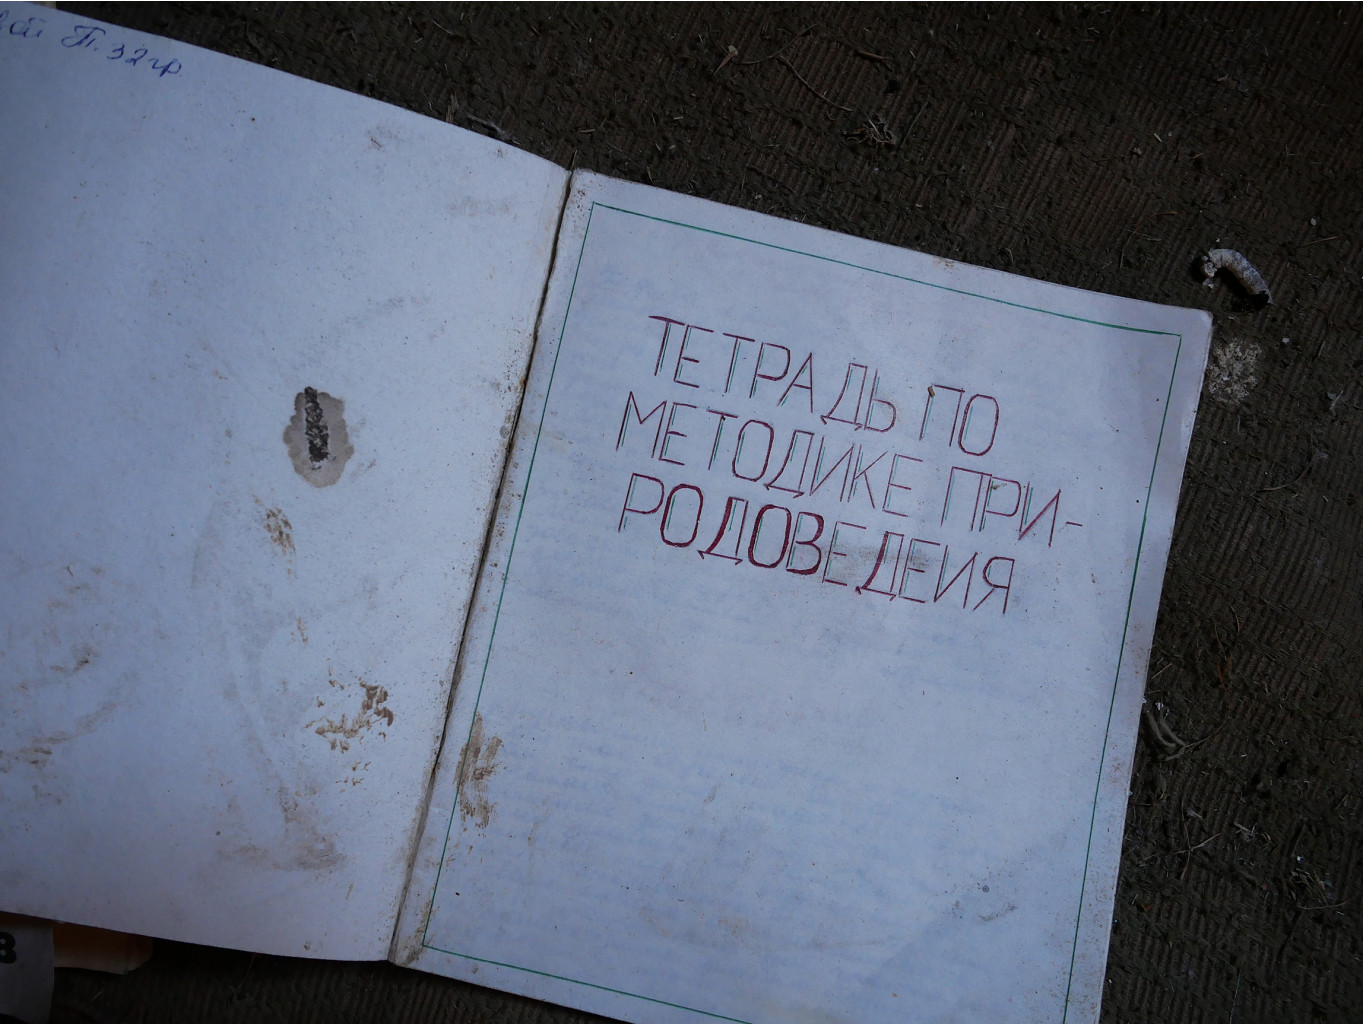 Т. 32 гр.
ТЕТРАДЬ ПО
МЕТОДИКЕ ПРИ-
РОДОВЕДЕИЯ